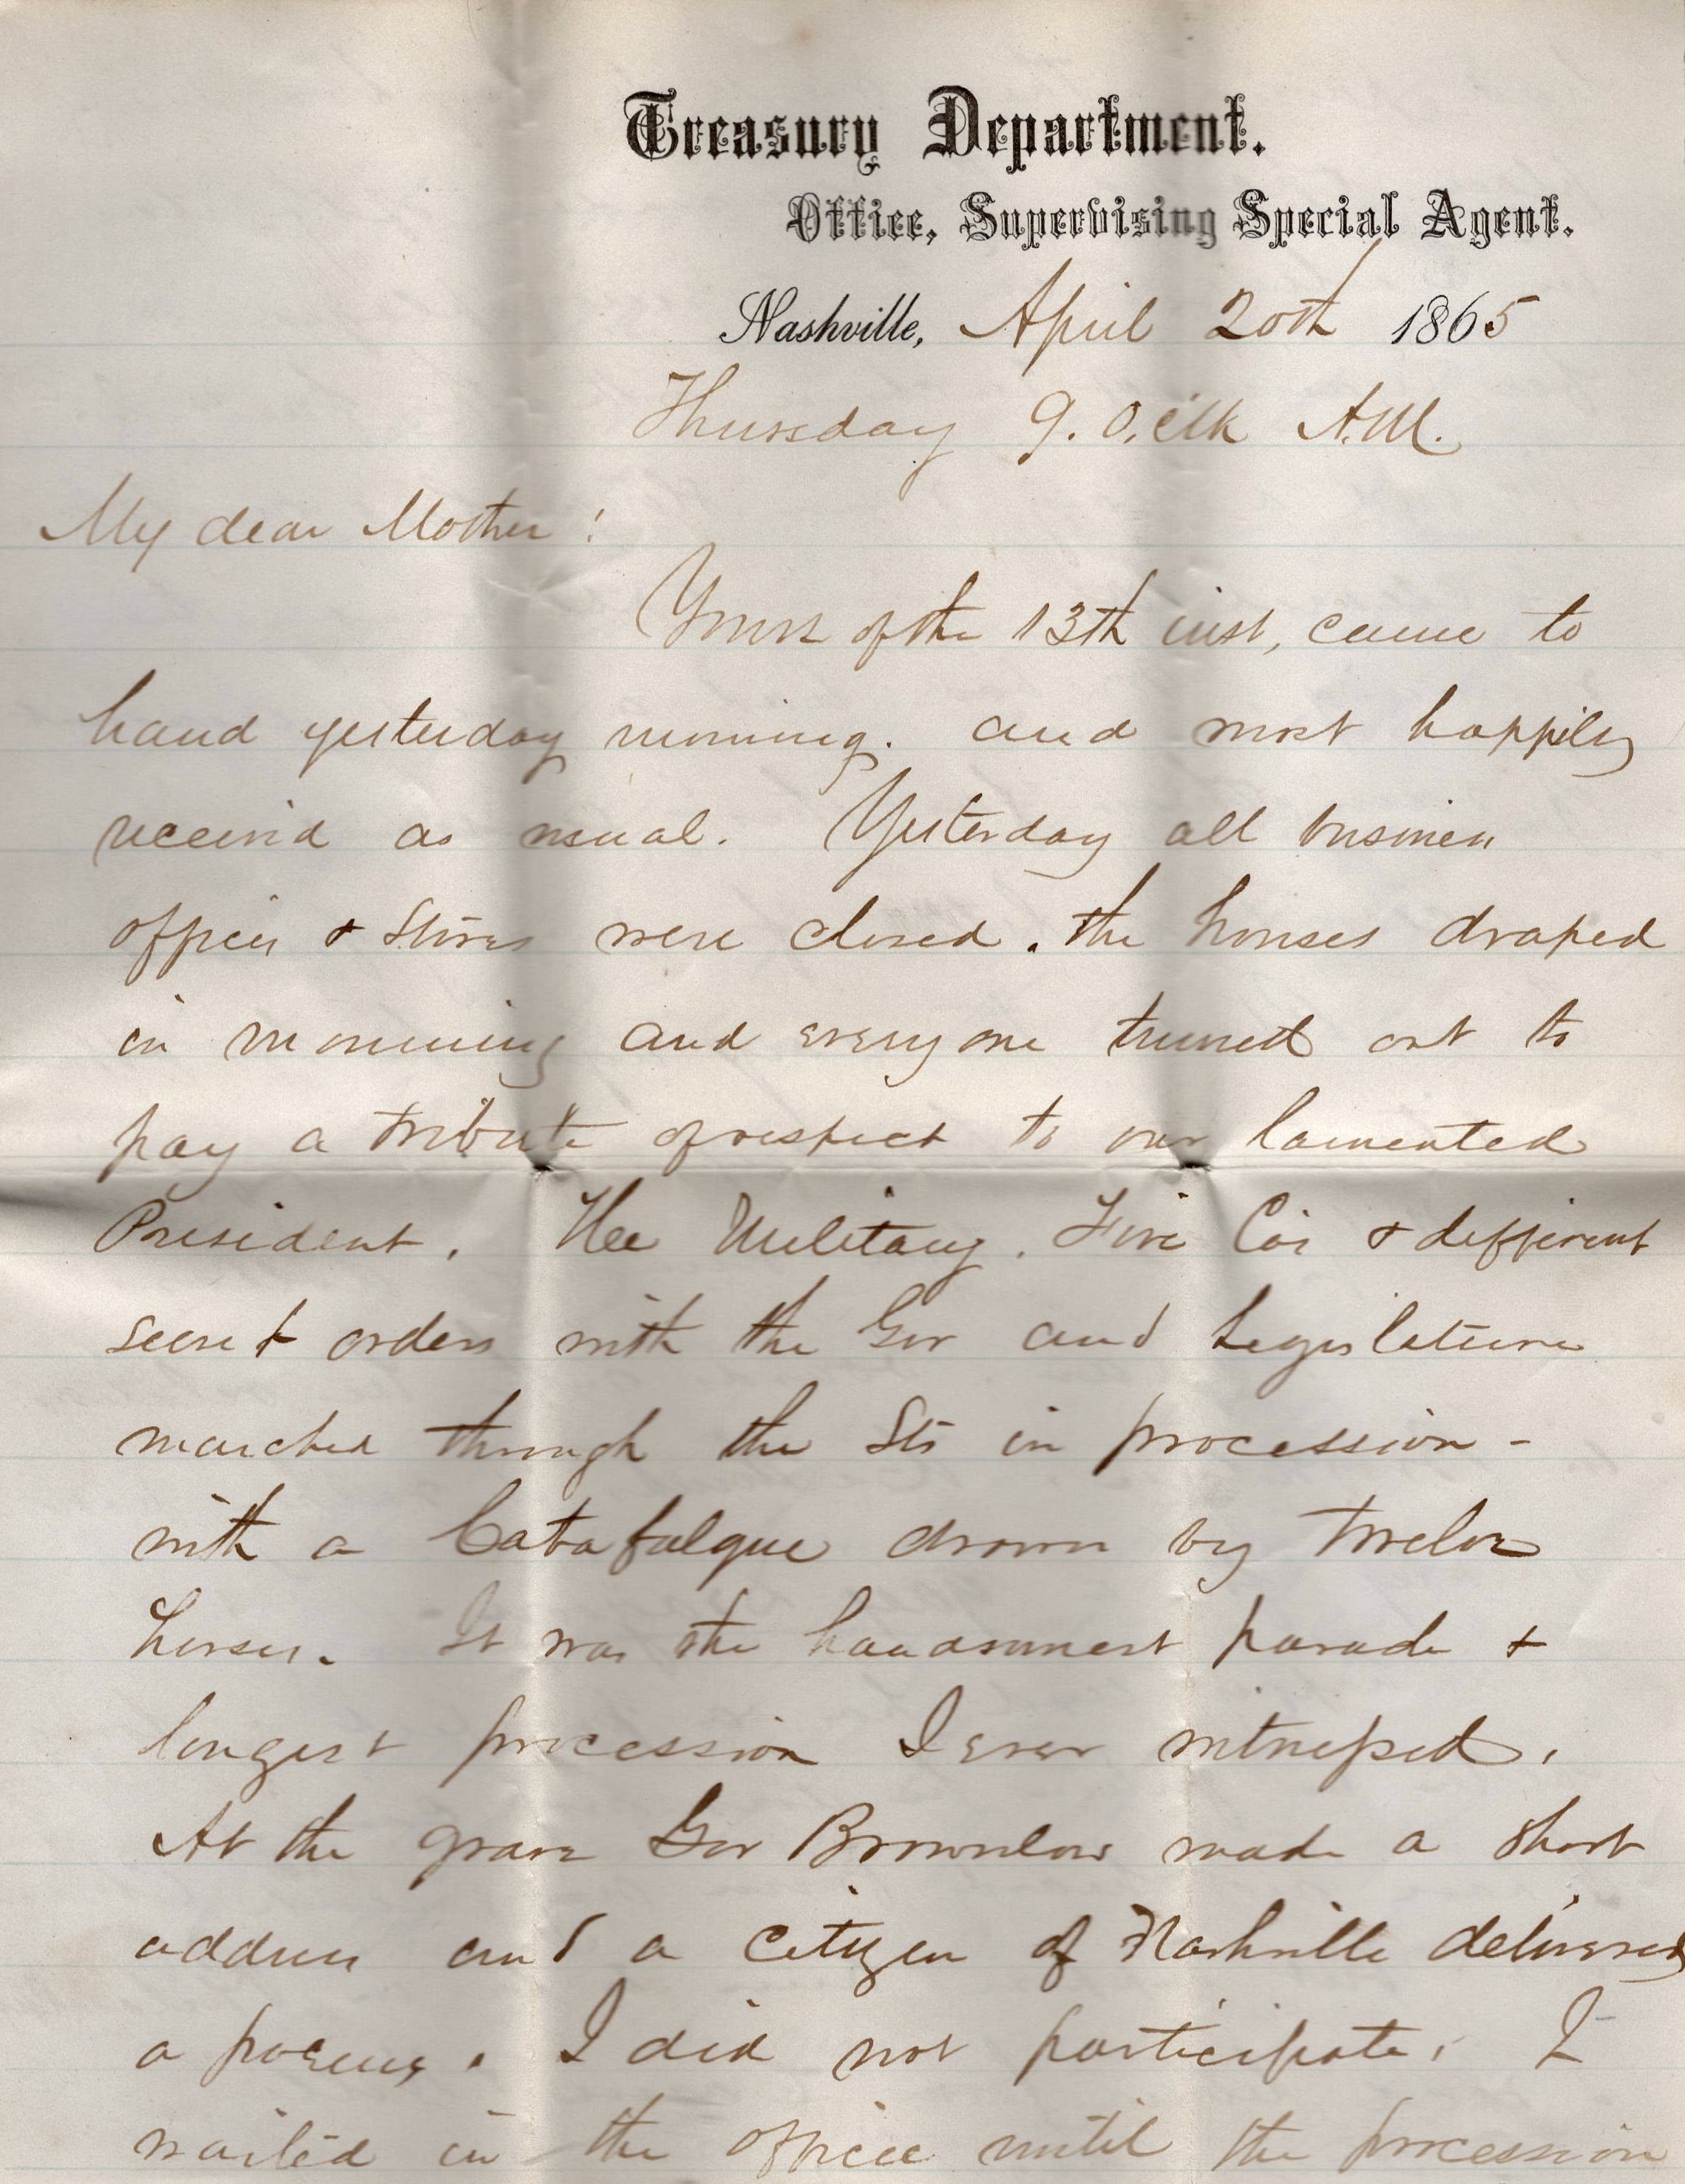 Treasury Department.
Office, Supervising Special Agent.
Nashville, April 20th 1865
Thursday 9. O,clk A.M.
My dear Mother!
Yours of the 13th inst, came to
hand yesterday morning. and most happily
received as usual. Yesterday all business
offices & Stores were closed. the houses draped
in mourning and everyone turned out to
pay a tribute of respect to our lamented
President. The Military. Fire Cos & different
secret orders with the Gov and Legislature
marched through the Sts in procession -
with a Catafalque drawn by twelve
horses. It was the handsomest parade &
longest procession I ever witnessed.
At the grave Gov Brownlow made a short
address and a citizen of Nashville delivered
a poem. I did not participate, I
waited in the office until the procession